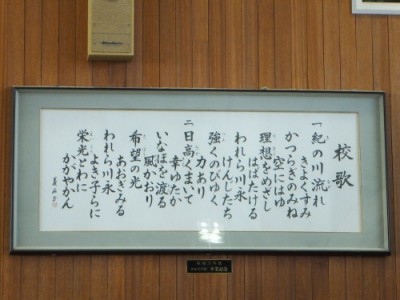 校歌
一 紀の川流れ
きよくすみ
かつらぎのみね
空にはゆ
理想をめざし
はばたける
われら川永
けんしたち
強くのびゆく
力あり
二 日高くまいて
幸ゆたか
いなほを渡る
風かおり
希望の光
あおぎみる
われら川永
よき子らに
栄光とわに
かがやかん